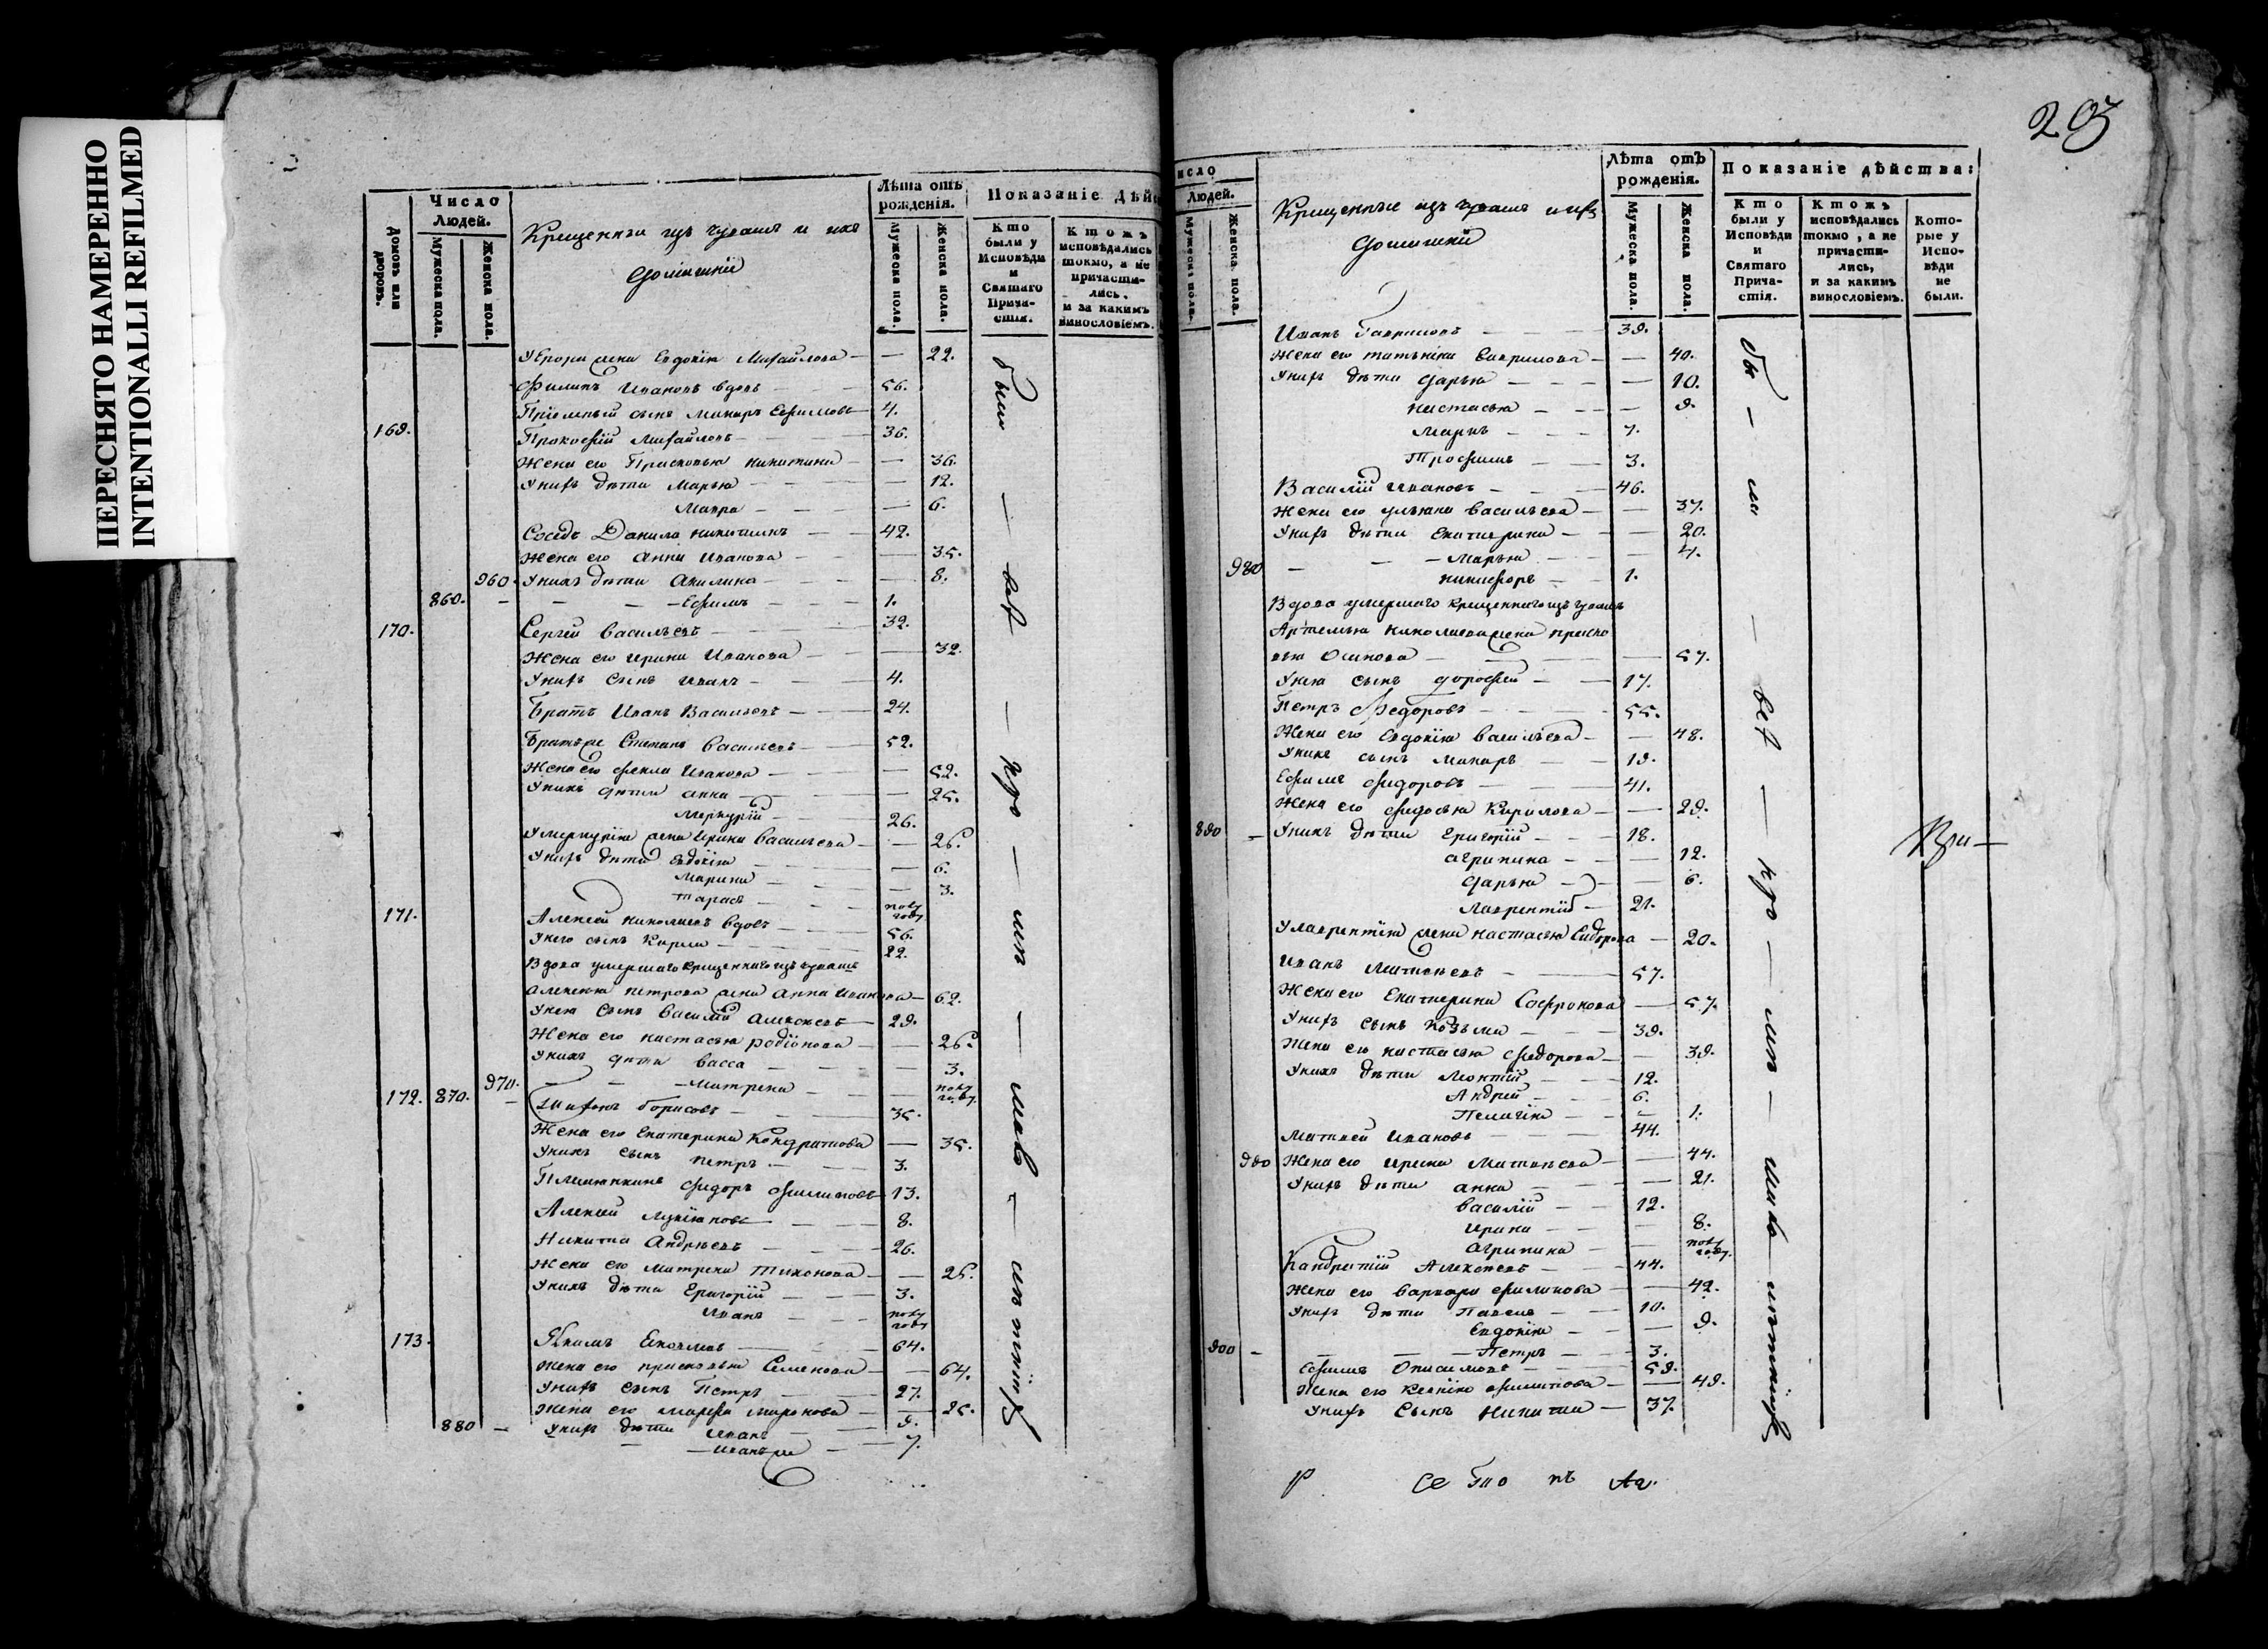 ПЕРЕСНЯТО НАМЕРЕННО
INTENTIONALLI REFILMED
Домовъ или дворовъ.
Число Людей.
Мужеска пола.
Женска пола.
Крещенныя изъ чувашъ и ихъ
домашніи
Лѣта отъ рожденія.
Мужеска пола.
Женска пола.
Показаніе Дѣй
Кто были у Исповѣди и Святаго Причастія.
Ктожъ исповѣдались токмо, а не причастились, и за какимъ винословіемъ.
жена Евдокія Михайлова — 22.
Филипъ Ивановъ вдовъ 56.
Пріемный сынъ Макаръ Ефимовъ 4.
169. Прокофій Михайловъ 36.
Жена его Прасковья Никитина — 36.
У нихъ дѣти Марья — 12.
Мавра — 6.
Соседъ Данило Никитинъ 42.
Жена его Анна Иванова — 35.
960 У нихъ дѣти Акилина — 8.
860. — Ефимъ 1.
170. Сергей Васильевъ 32.
Жена его Ирина Иванова — 32.
У нихъ сынъ Иванъ 4.
Братъ Иванъ Васильевъ 24.
Братъ же Степанъ Васильевъ 52.
Жена его Фекла Иванова — 52.
У нихъ дѣти Анна — 25.
Меркурій 26.
У Меркурія жена Ирина Васильева — 26.
У нихъ дѣти Евдокія — 6.
Марина — 3.
Тарасъ полу году
171. Алексей Николаевъ вдовъ 56.
У него сынъ Карпъ 22.
Вдова умершаго крещеннаго изъ чувашъ
Алексея Петрова жена Анна Иванова — 62.
У нея сынъ Василій Алексеевъ 29.
Жена его Настасья Родіонова — 26.
У нихъ дѣти Васса — 3.
970. — Матрена — полу году
172. 870. — Борисовъ 35.
Жена его Екатерина Кондратиова — 35.
У нихъ сынъ Петръ 3.
Племянники Фидоръ Филиповъ 13.
Алексей 8.
Никита Андрѣевъ 26.
Жена его Матрена Тихонова — 25.
У нихъ дѣти Григорій 3.
Иванъ полу году
173. Якимъ 64.
Жена его Прасковья Семенова — 64.
У нихъ сынъ Петръ 27.
Жена его Марфа Миронова — 25.
880 — У нихъ дѣти Иванъ 9.
— Иванъ же 7.
203
исло
Людей.
Мужеска пола.
Женска пола.
Крещенные изъ чувашъ и ихъ
домашніи
Лѣта отъ рожденія.
Мужеска пола.
Женска пола.
Показаніе дѣйства:
Кто были у Исповѣди и Святаго Причастія.
Ктожъ исповѣдались токмо, а не причастились, и за какимъ винословіемъ.
Которые у Исповѣди не были.
Иванъ Гавриловъ 39.
Жена его Татьяна Гаврилова — 40.
У нихъ дѣти Дарья — 10.
Настасья — 9.
Маркъ 7.
Трофимъ 3.
Василій Ивановъ 46.
Жена его Ульяна Васильева — 37.
У нихъ дѣти Екатерина — 20.
— Марья — 4.
980 — Никифоръ 1.
Вдова умершаго крещеннаго изъ чувашъ
Артемья Николаева жена Праско
вья Осипова — 57.
У нея сынъ Дорофей 17.
Петръ Федоровъ 55.
Жена его Евдокія Васильева — 48.
У нихъ сынъ Макаръ 19.
Ефимъ Фидоровъ 41.
Жена его Фидосья Кирилова — 29.
890 — У нихъ дѣти Григорій 18.
Агрипина — 12.
Дарья — 6.
Лаврентій 21.
У Лаврентія жена Настасья Сидорова — 20.
Иванъ Матвѣевъ 57.
Жена его Екатерина Софронова — 57.
У нихъ сынъ Козьма 39.
Жена его Настасья Федорова — 39.
У нихъ дѣти Леонтій 12.
Андрей 6.
Пелагія — 1.
Матвей Ивановъ 44.
990 Жена его Ирина Матвѣева — 44.
У нихъ дѣти Анна — 21.
Василій 12.
Ирина — 8.
Агрипина — полу году
Кандратій Алексеевъ 44.
Жена его Варвара Филипова — 42.
У нихъ дѣти Павелъ 10.
Евдокія — 9.
900 — Петръ 3.
Ефимъ 59.
Жена его Филипова — 49.
У нихъ сынъ Никита 37.